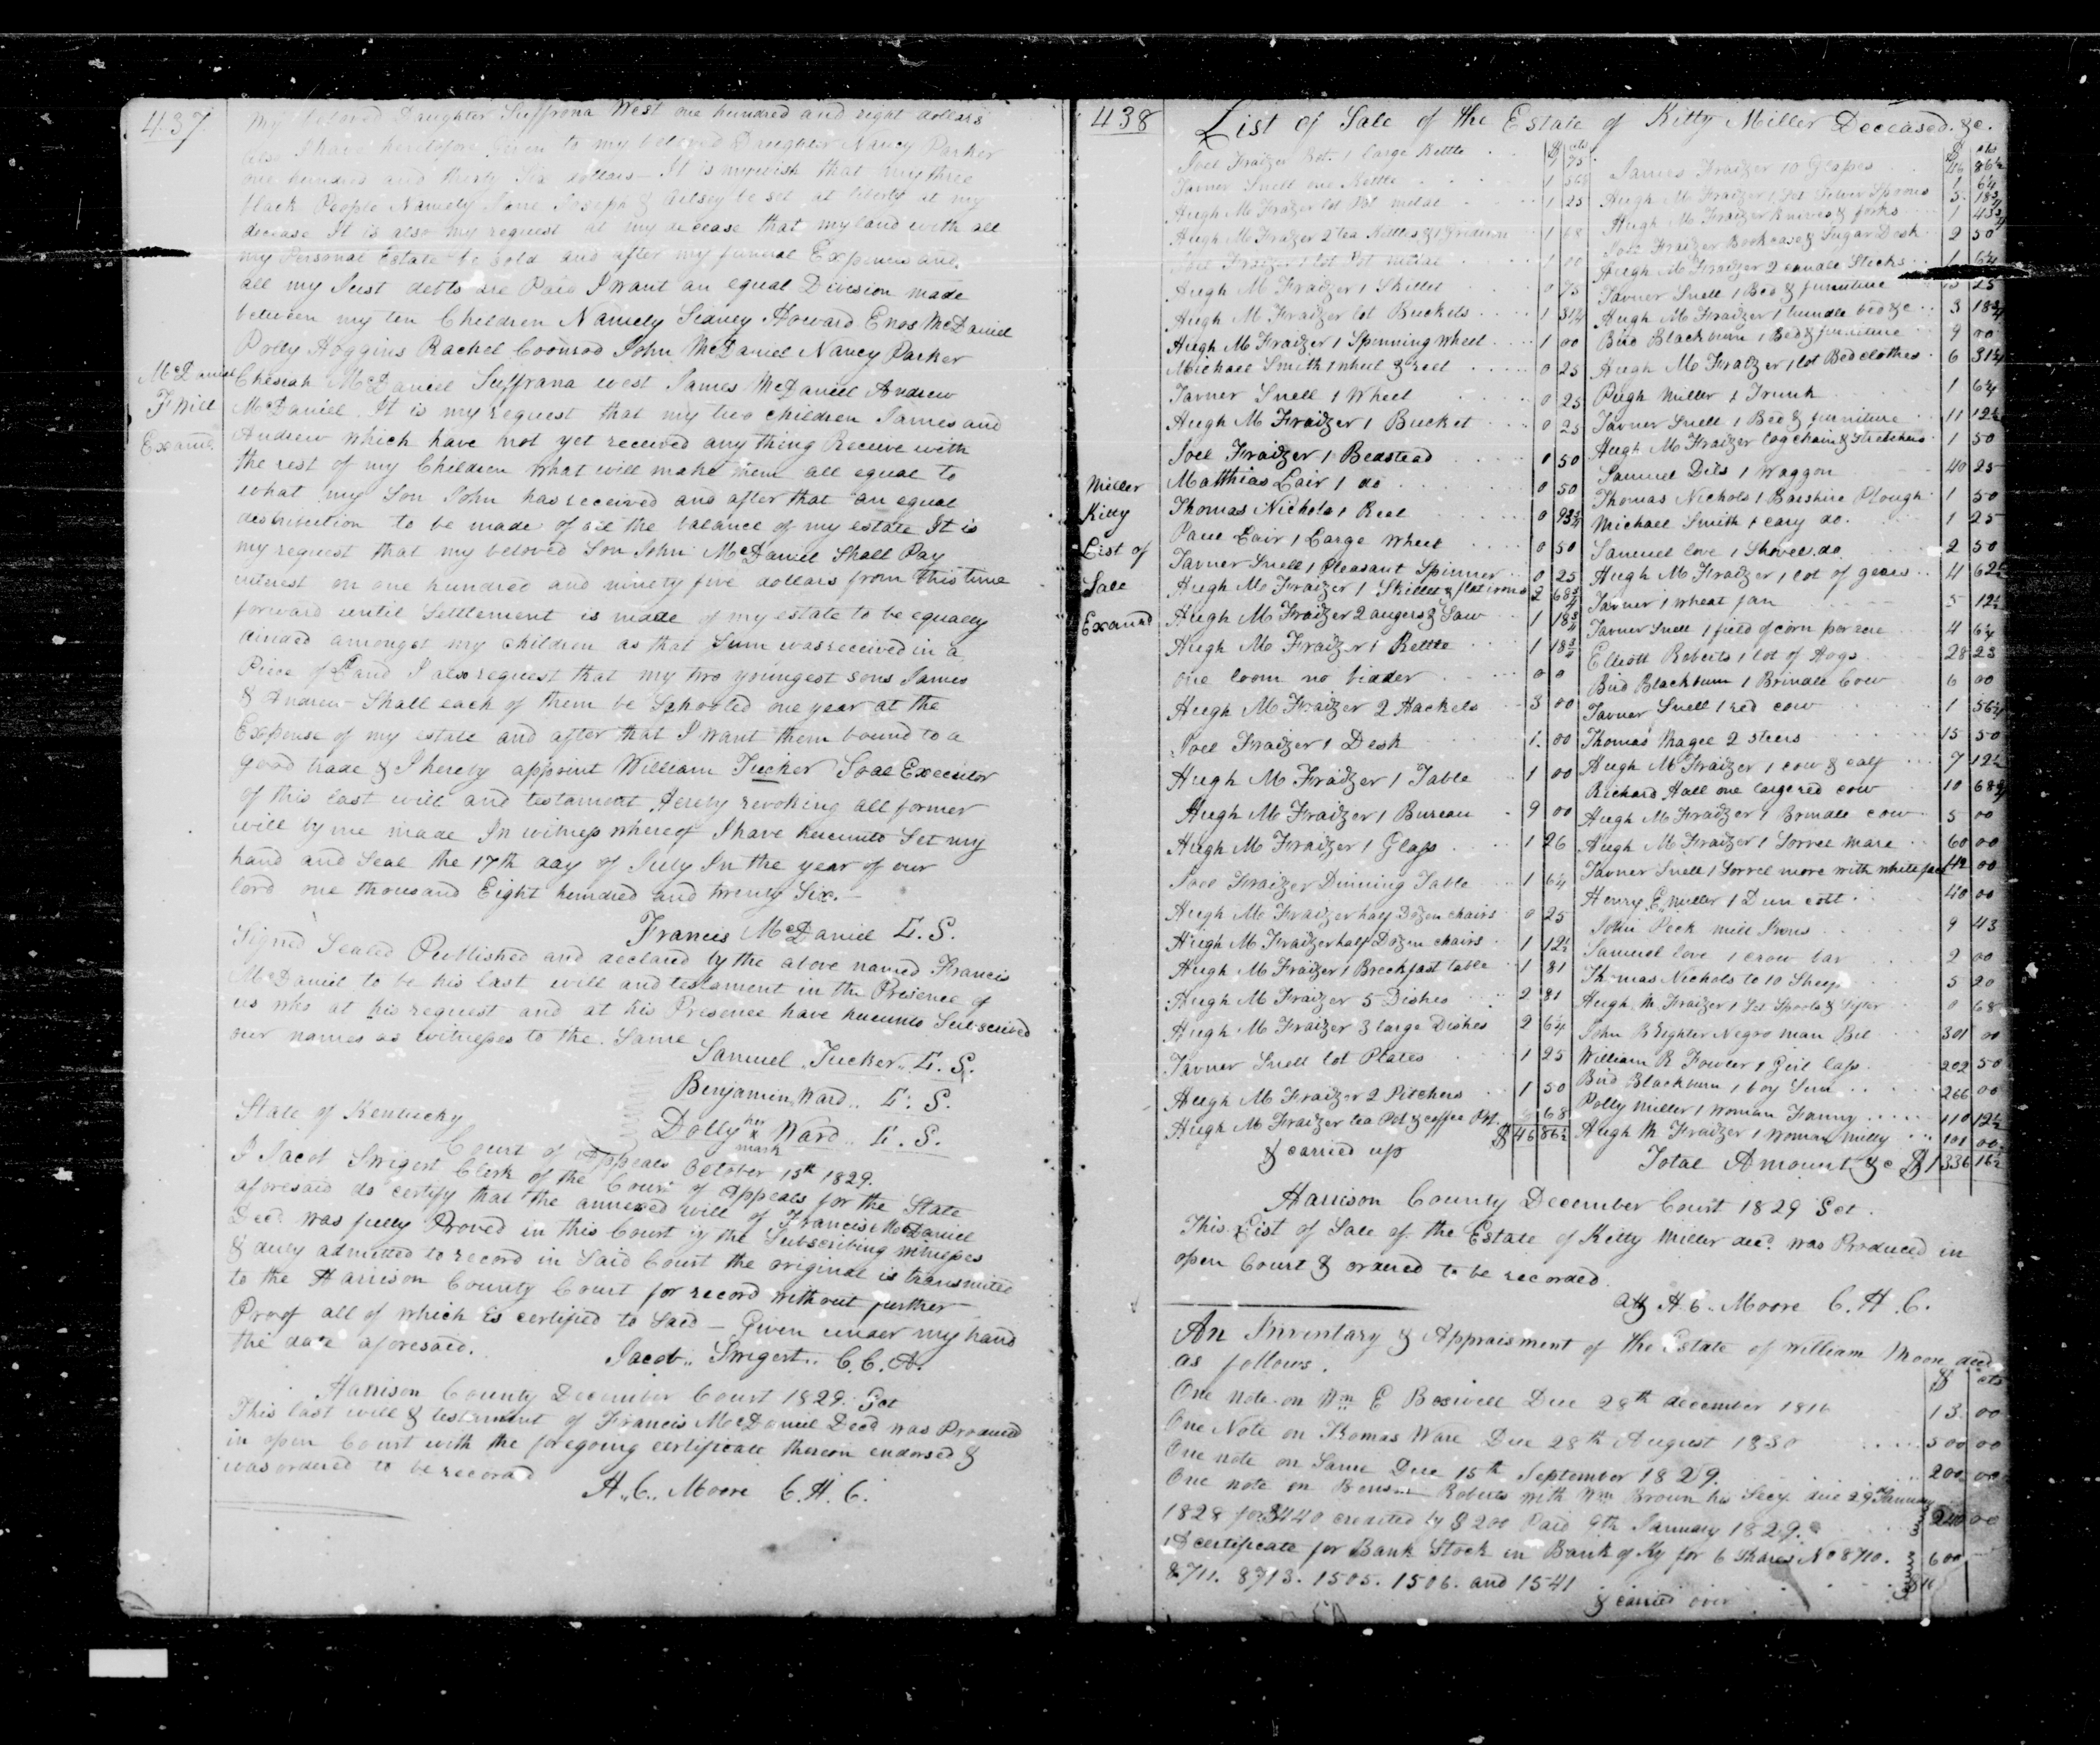 437
My beloved Daughter Suffrona West one hundred and eight dollars
also I have heretofore Given to my beloved Daughter Nancy Parker
one hundred and thirty Six dollars - It is my wish that my three
black People Namely Jane Joseph & Betsey be set at liberty at my
decease It is also my request at my decease that my land with all
my Personal Estate be Sold and after my funeral Expences and
all my Just debts are Paid I want an equal Division made
between my ten Children Namely Seaney Howard Enos McDaniel
Polly Hoggins Rachel Coonrod John McDaniel Nancy Parker
McDaniel
F Will
Examd.
Chesiah McDaniel Suffrana west James McDaniel Andrew
McDaniel. It is my request that my two children James and
Andrew which have not yet received any thing Receive with
the rest of my Children what will make them all equal to
what my Son John has received and after that an equal
destribution to be made of all the balance of my estate It is
my request that my beloved Son John McDaniel Shall Pay
interest on one hundred and ninety five dollars from this time
forward until Settlement is made of my estate to be equally
divided amongst my children as that Sum was received in a
Piece of Land I also request that my two youngest sons James
& Andrew Shall each of them be Schooled one year at the
Expense of my estate and after that I want them bound to a
good trade & I hereby appoint William Tucker Soal Executor
of this last will and testament hereby revoking all former
will by me made In witness whereof I have hereunto Set my
hand and Seal the 17th day of July In the year of our
lord one thousand Eight hundred and twenty Six. -
Francis McDaniel L.S.
Signed Sealed Published and declared by the above named Francis
McDaniel to be his last will and testament in the Presence of
us who at his request and at his Presence have hereunto Subscribed
our names as witnesses to the Same
Samuel Tucker L.S.
Benjamin Ward L.S.
Dolly her x mark Ward L.S.
State of Kentucky
Court of Appeals October 15th 1829.
I Jacob Swigert Clerk of the Court of Appeals for the State
aforesaid do certify that the annexed will of Francis McDaniel
Decd. was fully Proved in this Court by the Subscribing witnesses
& duly admitted to record in Said Court the original is transmited
to the Harrison County Court for record without further
Proof all of which is certified to Said - Given under my hand
the date aforesaid.
Jacob Swigert C.C.A.
Harrison County December Court 1829. Sct
This last will & testament of Francis McDaniel Decd was Produced
in open Court with the foregoing certificate thereon endorsed &
was ordered to be recorded
H.C. Moore C.H.C.
438
List of Sale of the Estate of Kitty Miller Deceased. &c.
Miller
Kitty
List of
Sale
Examd
$ cts
Joel Fraizer Pot. 1 large Kettle 75
Tavner Snell one Kettle 1
Hugh M Fraizer lot Pot metal 1 25
Hugh M Fraizer 2 tea Kettles & 1 Gridiron 1 68
Joel Fraizer 1 lot Pot metal 1 00
Hugh M Fraizer 1 Skillet 0 75
Hugh M Fraizer lot Buckets 1 31¼
Hugh M Fraizer 1 Spinning Wheel 1 00
Michael Smith 1 wheel & reel 0 25
Tavner Snell 1 Wheel 0 25
Hugh M Fraizer 1 Bucket 0 25
Joel Fraizer 1 Bedstead 0 50
Matthias Lair 1 do 0 50
Thomas Nichols 1 Reel 0 93¾
Paul Lair 1 Large Wheel 0 50
Tavner Snell 1 Pleasant Spinner 0 25
Hugh M Fraizer 1 Skillet & flat irons 2 68¾
Hugh M Fraizer 2 augers & Saw 1 18¾
Hugh M Fraizer 1 Kettle 1 18¾
one loom no bidder 0 0
Hugh M Fraizer 2 Hackels 3 00
Joel Fraizer 1 Desk 1. 00
Hugh M Fraizer 1 Table 1 00
Hugh M Fraizer 1 Bureau 9 00
Hugh M Fraizer 1 Glass 1 26
Joel Fraizer Dinning Table 1 6¼
Hugh M Fraizer half Dozen chairs 0 25
Hugh M Fraizer half Dozen chairs 1 12½
Hugh M Fraizer 1 Breckfast table 1 81
Hugh M Fraizer 5 Dishes 2 81
Hugh M Fraizer 3 large Dishes 2 6¼
Tavner Snell lot Plates 1 25
Hugh M Fraizer 2 Pitchers 1 50
Hugh M Fraizer tea Pot & coffee Pot 68
& carried up $ 46 86½
$ cts
46 86½
James Fraizer 10 Glasses 1 6¼
Hugh M Fraizer 1 Set Silver Spoons 5. 18¾
Hugh M Fraizer Knives & forks 1 43¾
Joel Fraizer Bookcase & Sugar Desk 2 50
Hugh M Fraizer 2 candle Sticks 1 6¼
Tavner Snell 1 Bed & furniture 25
Hugh M Fraizer 1 trundle bed &c 3 18¾
Bird Blackburn 1 Bed & furniture 9 00
Hugh M Fraizer 1 lot Bedclothes 6 31¼
Pugh Miller 1 Trunk 1 6¼
Tavner Snell 1 Bed & furniture 11 12½
Hugh M Fraizer log chain & Stretchers 1 50
Samuel Dils 1 Waggon 40 25
Thomas Nichols 1 Barshire Plough 1 50
Michael Smith 1 cary do. 1 25
Samuel love 1 Shovel do 2 50
Hugh M Fraizer 1 lot of gears 4 62½
Tavner 1 wheat fan 5 12½
Tavner Snell 1 field of corn per acre 4 6¼
Elliott Roberts 1 lot of Hogs 28 25
Bird Blackburn 1 Brindle Cow 6 00
Tavner Snell 1 red cow 1 56¼
Thomas Magee 2 steers 15 50
Hugh M Fraizer 1 cow & calf 7 12½
Richard Hall one large red cow 10 68¾
Hugh M Fraizer 1 Brindle cow 5 00
Hugh M Fraizer 1 Sorrel mare 60 00
Tavner Snell 1 Sorrel more with white face 42 00
Henry E Miller 1 Dun colt 40 00
John Peck mill Irons 9 43
Samuel love 1 crow bar 2 00
Thomas Nichols to 10 Sheep 5 20
Hugh M Fraizer 1 Set Spools & Sifter 0 68
John B Lighter Negro man Bil 301 00
William R Fowler 1 Girl Cass 202 50
Bird Blackburn 1 boy 266 00
Polly Miller 1 Woman Fanny 110 12½
Hugh M Fraizer 1 Woman Milly 101 00
Total Amount &c $ 1336 16½
Harrison County December Court 1829 Sct.
This List of Sale of the Estate of Kitty Miller decd. was Produced in
open Court & ordered to be recorded.
att H.C. Moore C.H.C.
An Inventary & Appraisment of the Estate of William Moore decd
as follows.
$ cts
One note on Wm E Boswell Due 28th december 1816 13. 00
One Note on Thomas Ware Due 28th August 1830 500 00
One note on Same Due 15th September 1829. 200 00
One note on Roberts with Wm Brown his Secy. due 29th January
1828 for $440 credited by $200 Paid 9th January 1829. 240 00
A certificate for Bank Stock in Bank of Ky for 6 Shares No 8710. 600
8711. 8713. 1505. 1506. and 1541
& carried over